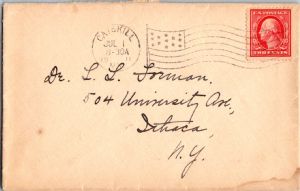 CATSKILL
JUL 1
8-30A
N.Y.
U.S. POSTAGE
Dr. L. L. Forman.
504 University Ave,
Ithaca,
N.Y.
TWO CENTS